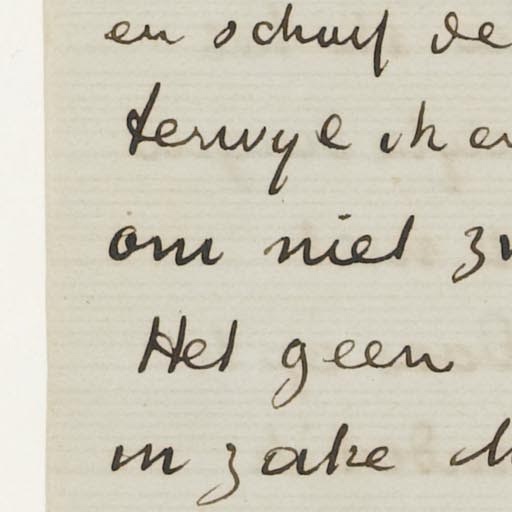 en schryf de
terwyl ik er
om niet z
Het geen
in zake